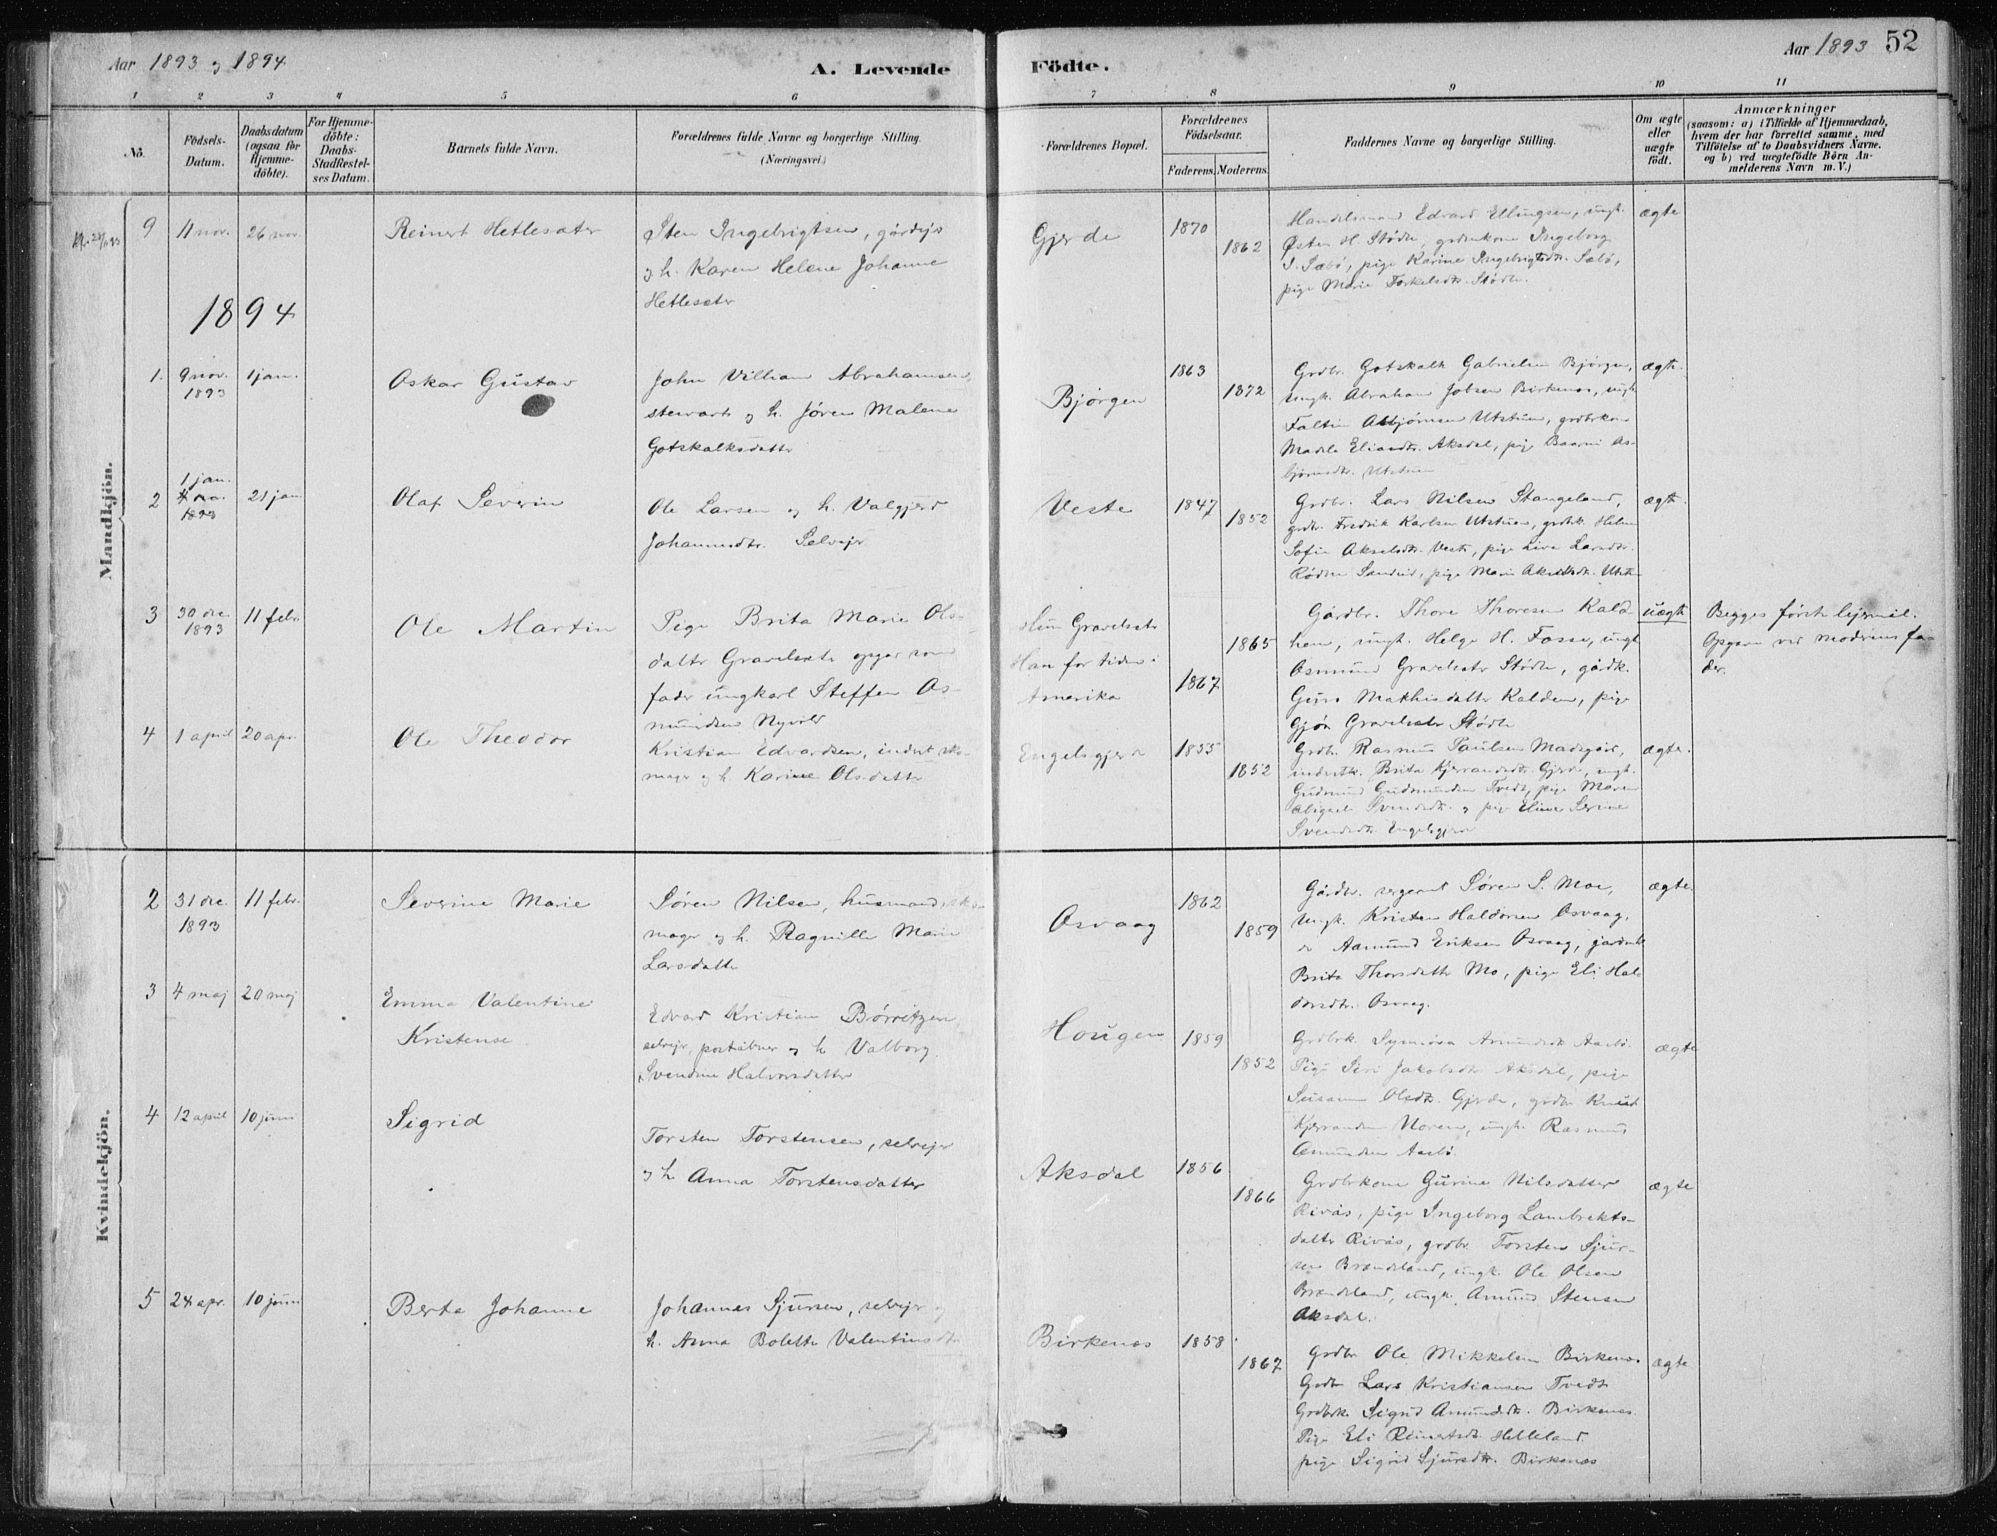 Aar 1893 og 1894
A. Levende
Födte.
Aar 1893
52
1 2 3 4 5 6 7 8 9 10 11
No.
Födsels-
Datum.
Daabsdatum
(ogsaa for
Hjemme-
döbte).
For Hjemme-
döbte:
Daabs-
Stadfæstel-
ses Datum.
Barnets fulde Navn.
Forældrenes fulde Navne og borgerlige Stilling.
(Næringsvei.)
Forældrenes Bopæl.
Forældrenes
Födselsaar.
Faderens. Moderens.
Faddernes Navne og borgerlige Stilling.
Om ægte
eller
uægte
födt.
Anmærkninger
(saasom: a) i Tilfælde af Hjemmedaab,
hvem der har forrettet samme, med
Tilföielse af to Daabsvidners Navne.
og b) ved uægtefödte Börn An-
melderens Navn m. V.)
Mandkjön.
9 11 nov. 26 nov.
Reinert Hetlesater
Sten Ingebrigtsen, gårdejer
og h. Karen Helene Johanne
Hetlesater
Gjerde
1870
1862
Handelsmand Edvard Ellingsen, ungk.
Østen H. Stødle, grdmkone Ingeborg
S. Sæbö, pige Karine Ingebrigtsdtr. Sæbö,
pige Marie Torkelsdtr. Stødle.
ægte
1894
1. 9 nov. 1 jan.
1893
Oskar Gustav
John Villiam Abrahamsen,
stewart og h. Jøren Malene
Gotskalksdatter
Bjørgen
1863
1872
Grdbr. Gotskalk Gabrielsen Bjørgen,
ungk. Abraham Jobsen Birkenes, ungk.
Faltin Asbjørnsen Utstuen, grdbrkone
Madele Eliasdtr. Aksdal, pig Baarni As-
bjørnsdtr. Utstuen
ægte.
1 jan.
2 21 jan
1893
Olaf Severin
Ole Larsen og h. Valgjerd
Johannesdtr. Selvejer
Veste
1847
1852
Grdbr. Lars Nilsen Stangeland,
grdbr. Fredrik Karlsen Utstuen, grdbk. Helene
Sofie Akselsdtr. Veste, pige Live Larsdtr.
Rødne Sandeid, pige Marie Akselsdtr. Utstu
ægte.
3 30 dec. 11 febr
1893
Ole Martin
Pige Brita Marie Ols-
datter Gravelsæte opgav som
fader ungkarl Steffen As-
mundsen Nyvold
Hun Gravelsæte
Han for tiden i
Amerika
1865
1867
Gårdbr. Thore Thoresen Kald-
hem, ungk. Helge H. Fosse, ungk
Osmund Gravelsæter Stødle, gårdk.
Guro Mathisdatter Kaldem, pige
Gjøa Gravelsæter Stødle
uægte
Begges første lejermål.
Opgave ved moderens fa-
der.
4 1 april 20 apr.
Ole Theodor
Kristian Edvardsen, inderst sko-
mager og h. Karine Olsdatter
Engelsgjerd
1855
1852
Grdbr. Rasmus Paulsen Madsgård,
inderstk. Brita Kjerrandsdtr. Gjerde, ungk.
Gudmund Gudmundsen Tvedt, pige Maren
Abigael Svendsdtr. og pige Eline Serine
Svendsdtr. Engelsgjerd
ægte.
Kvindekjön.
2 31 dec. 11 febr.
1893
Severine Marie
Søren Nilsen, husmand, sko-
mager og h. Ragnille Marie
Larsdatter
Osvaag
1862
1859
Gårdbr. sergeant Søren S. Moe,
Ungk. Kristen Haldorsen Osvaag,
do Aamund Eriksen Osvaag, gårdmk
Brita Thorsdatter Mo, pige Eli Hal-
dorsdtr. Osvaag.
ægte
3 4 maj 20 maj
Emma Valentine
Kristense
Edvard Kristian Børretzen
selvejer, postabner og h. Valborg
Svendine Halvorsdatter
Hougen
1859
1852
Grdbrk. Synnöva Amundsdtr. Aarbö
Pige Siri Jakobsdtr. Aksdal, pige
Susanne Olsdtr. Gjerde, grdbr Knud
Kjerrandsen Noren, ungk. Rasmus
Amundsen Aarbö.
ægte
4 12 april 10 juni
Sigrid
Torsten Torstensen, selvejer
og h. Anna Torstensdatter
Aksdal
1856
1866
Grdbrkone Gurine Nilsdatter
Rivås, pige Ingeborg Lambrekts-
datter Rivås, grdbr. Torsten Sjur-
sen Brandeland, ungk. Ole Olsen
Brandeland, ungk. Amund Stensen
Aksdal.
ægte
5 24 apr. 10 juni
Berta Johanne
Johannes Sjursen, selvejer og
h. Anna Bolette Valentinsdtr.
Birkenes
1858
1867
Grdbr Ole Mikkelsen Birkenes.
Grdbr Lars Kristiansen Tvedt
Grdbrk. Sigrid Amundsdtr. Birkenes.
Pige Eli Reinertsdtr. Helleland.
pige Sigrid Sjursdtr. Birkenes
ægte